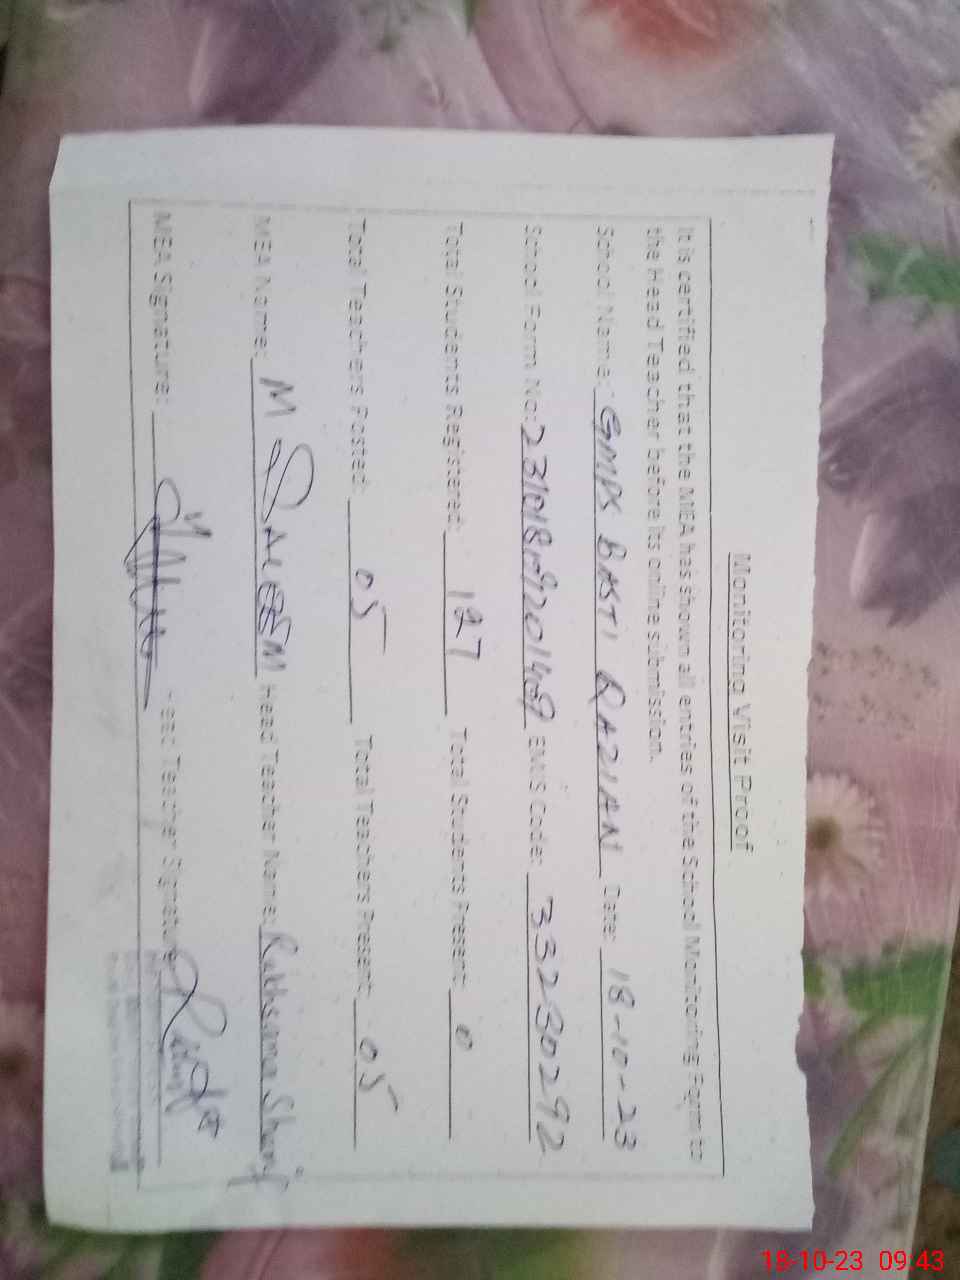 Monitoring Visit Proof
It is certified that the MEA has shown all entries of the School Monitoring Form to
the Head Teacher before its online submission.
School Name: GMPS BASTI QAZIAN Date: 18-10-23
School Form No: EMIS Code: 33230292
Total Students Registered: 127 Total Students Present: 0
Total Teachers Posted: 05 Total Teachers Present: 05
MEA Name: M SALEEM Head Teacher Name: Sharif
MEA Signature: Head Teacher Signature
18-10-23 09:43